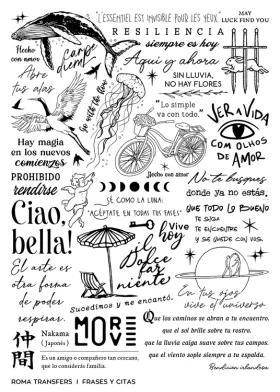 "L'ESSENTIEL EST INVISIBLE POUR LES YEUX."
MAY
LUCK FIND YOU
RESILIENCIA
Hecho
con amor
Carpe
diem
siempre es hoy
Aquí y ahora
Abre
tus alas
SIN LLUVIA,
NO HAY FLORES
Go with the flow
"Lo simple
va con todo."
VER A VIDA
COM OLHOS
DE AMOR
Hay magia
en los nuevos
comienzos
Hecho con amor
PROHIBIDO
rendirse
No te busques
donde ya no estás.
SÉ COMO LA LUNA:
"ACÉPTATE EN TODAS TUS FASES"
QUE TODO LO BUENO
TE SIGA
TE ENCUENTRE
Y SE QUEDE CON VOS.
Ciao,
bella!
Vive
hoy
il
Dolce
far
niente
El arte es
otra forma
de poder
respirar.
En tus ojos
vive el universo
Sucedimos y me encantó.
MORE
LOVE
仲間
Nakama
(Japonés)
Es un amigo o compañero tan cercano,
que lo considerás familia.
Que los caminos se abran a tu encuentro,
que el sol brille sobre tu rostro,
que la lluvia caiga suave sobre tus campos,
que el viento sople siempre a tu espalda.
Bendición irlandesa
ROMA TRANSFERS | FRASES Y CITAS